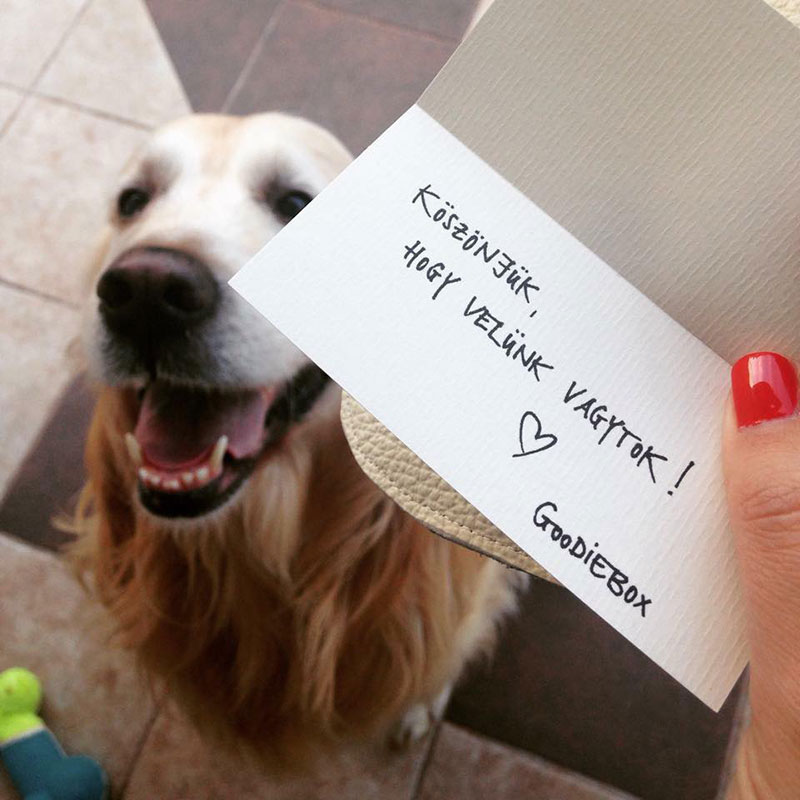 KÖSZÖNJÜK,
HOGY VELÜNK VAGYTOK!
GOODIEBOX